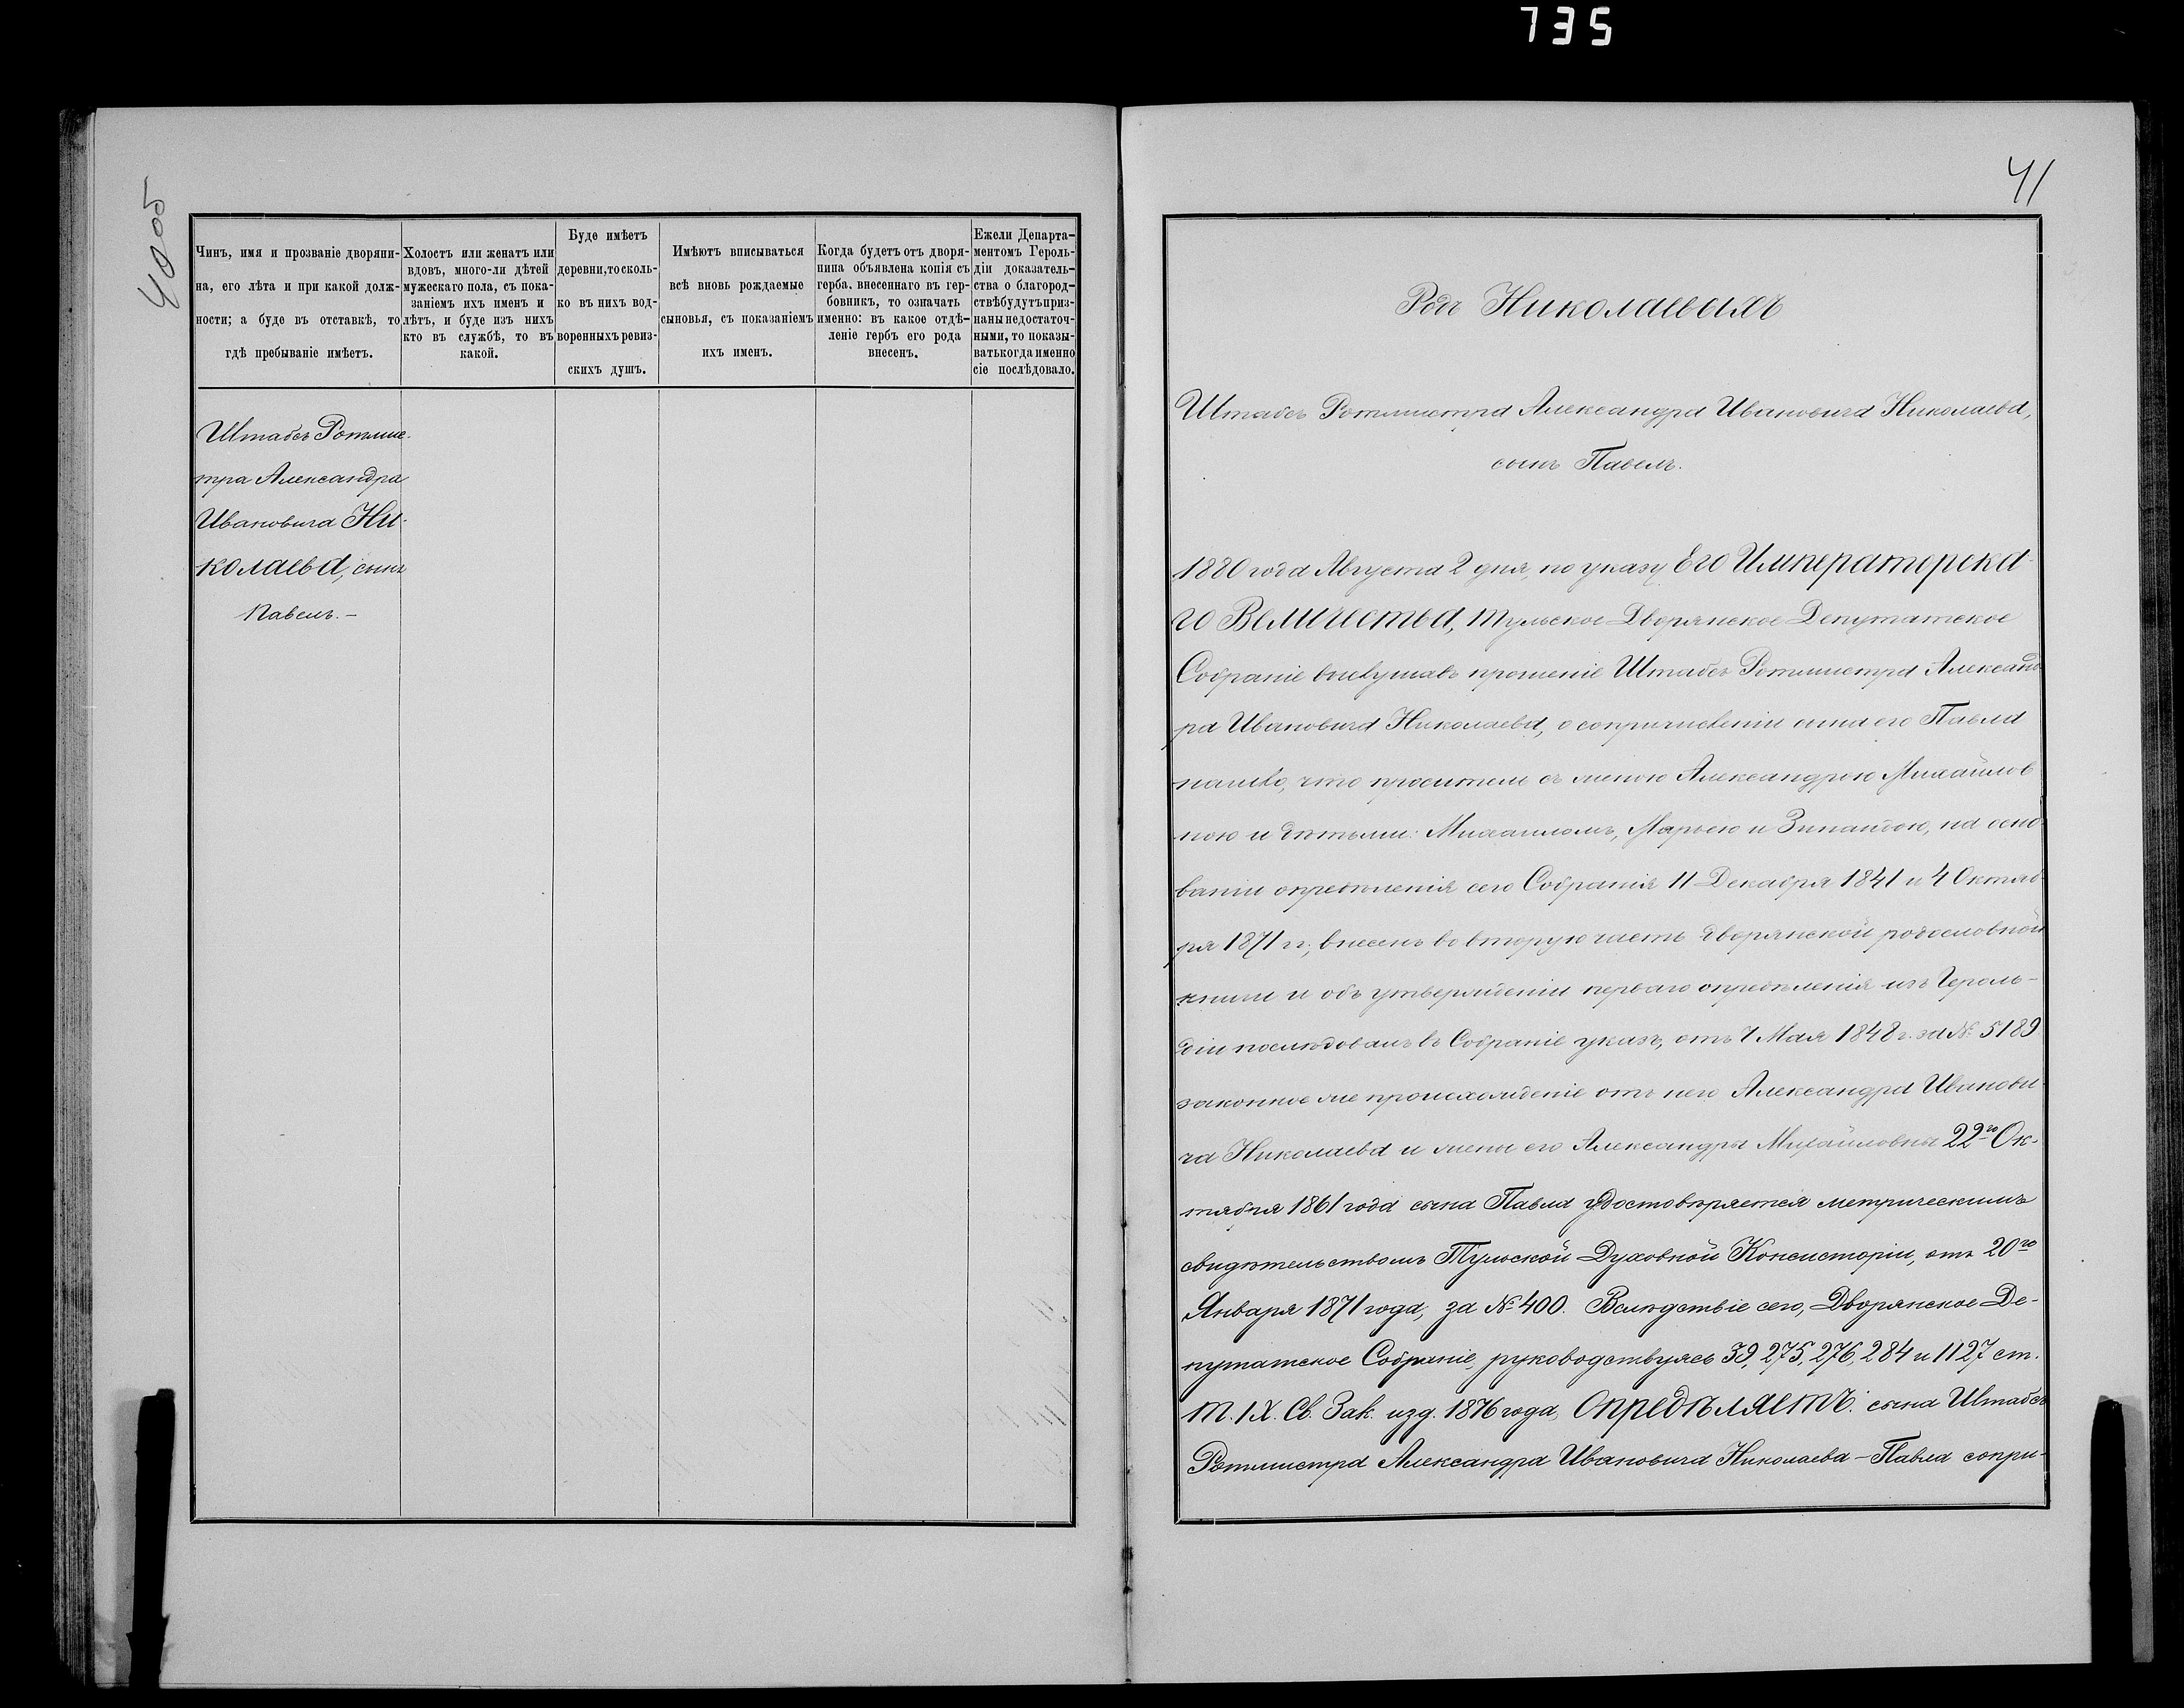 735
40об
Чинъ, имя и прозваніе дворяни-
на, его лѣта и при какой долж-
ности; а буде въ отставкѣ, то
гдѣ пребываніе имѣетъ.
Холостъ или женатъ или
вдовъ, много-ли дѣтей
мужескаго пола, съ пока-
заніемъ ихъ именъ и
лѣтъ, и буде изъ нихъ
кто въ службѣ, то въ
какой.
Буде имѣетъ
деревни, то сколь-
ко въ нихъ вод-
воренныхъ ревиз-
скихъ душъ.
Имѣютъ вписываться
всѣ вновь рождаемые
сыновья, съ показаніемъ
ихъ именъ.
Когда будетъ отъ дворя-
нина объявлена копія съ
герба, внесеннаго въ гер-
бовникъ, то означать
именно: въ какое отдѣ-
леніе гербъ его рода
внесенъ.
Ежели Департа-
ментомъ Героль-
діи доказатель-
ства о благород-
ствѣ будутъ приз-
наны недостаточ-
ными, то показы-
вать когда именно
сіе послѣдовало.
Штабсъ Ротмис-
тра Александра
Ивановича Ни-
колаева, сынъ
Павелъ.—
41
Родъ Николаевыхъ
Штабсъ Ротмистра Александра Ивановича Николаева,
сынъ Павелъ.
1880 года Августа 2 дня, по указу Его Императорска-
го Величества, Тульское Дворянское Депутатское
Собраніе выслушавъ прошеніе Штабсъ Ротмистра Александ-
ра Ивановича Николаева, о сопричисленіи сына его Павла
нашло, что проситель съ женою Александрою Михайлов
ною и дѣтьми: Михаиломъ, Марьею и Зинаидою, на осно-
ваніи опредѣленія сего Собранія 11 Декабря 1841 и 4 Октяб-
ря 1871 гг., внесенъ во вторую часть дворянской родословной
книги и объ утвержденіи перваго опредѣленія изъ Героль-
діи послѣдовалъ въ Собраніе указъ, отъ 7 Мая 1848 г. за № 5189
законное же происхожденіе отъ него Александра Иванови-
ча Николаева и жены его Александры Михайловны 22го Ок-
тября 1861 года сына Павла удостовѣряется метрическимъ
свидѣтельствомъ Тульской Духовной Консисторіи, отъ 20го
Января 1871 года, за № 400. Вслѣдствіе сего, Дворянское Де-
путатское Собраніе, руководствуясь 39, 275, 276, 284 и 1127 ст.
Т. IX. Св. Зак. изд. 1876 года, Опредѣляетъ: сына Штабсъ
Ротмистра Александра Ивановича Николаева – Павла сопри-